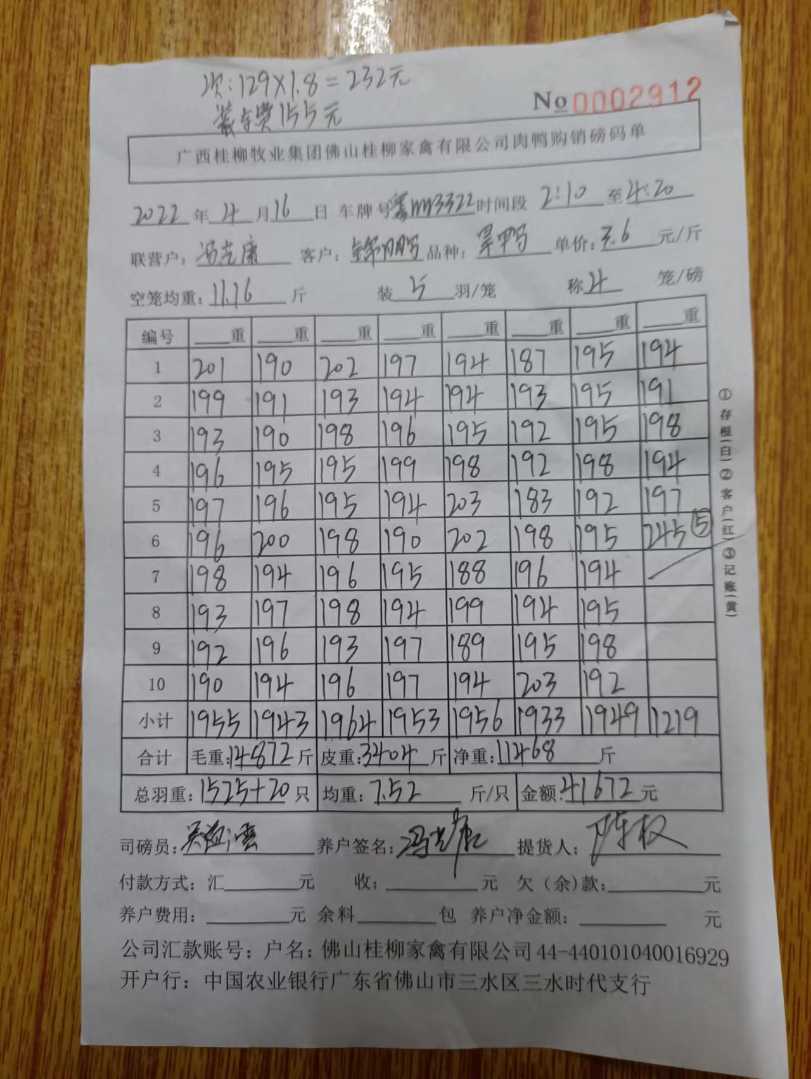 次:129×1.8=232元
装车费155元
No 0002912
广西桂柳牧业集团佛山桂柳家禽有限公司肉鸭购销磅码单
2022年4月16日 车牌号 M3322 时间段 2:10 至 4:20
联营户: 客户: 品种: 单价: .6 元/斤
空笼均重:11.16斤 装5羽/笼 称4笼/磅
编号 重 重 重 重 重 重 重 重
1 201 190 202 197 194 187 195 194
2 199 191 193 194 194 193 195 191
3 193 190 198 196 195 192 195 198
4 196 195 195 199 198 192 198 194
5 197 196 195 194 203 183 192 197
6 196 200 198 190 202 198 195 245 ⑤
7 198 194 196 195 188 196 194
8 193 197 198 194 199 194 195
9 192 196 193 197 189 195 198
10 190 194 196 197 194 203 192
小计 1955 1943 1964 1953 1956 1933 1949 1219
合计 毛重:14872斤 皮重:3404斤 净重:11468斤
总羽重:1525+20只 均重:7.52斤/只 金额:41672元
司磅员: 养户签名: 提货人:陈权
付款方式:汇 元 收: 元 欠(余)款: 元
养户费用: 元 余料 包 养户净金额: 元
公司汇款账号:户名:佛山桂柳家禽有限公司 44-440101040016929
开户行:中国农业银行广东省佛山市三水区三水时代支行
①存根(白)②客户(红)③记账(黄)